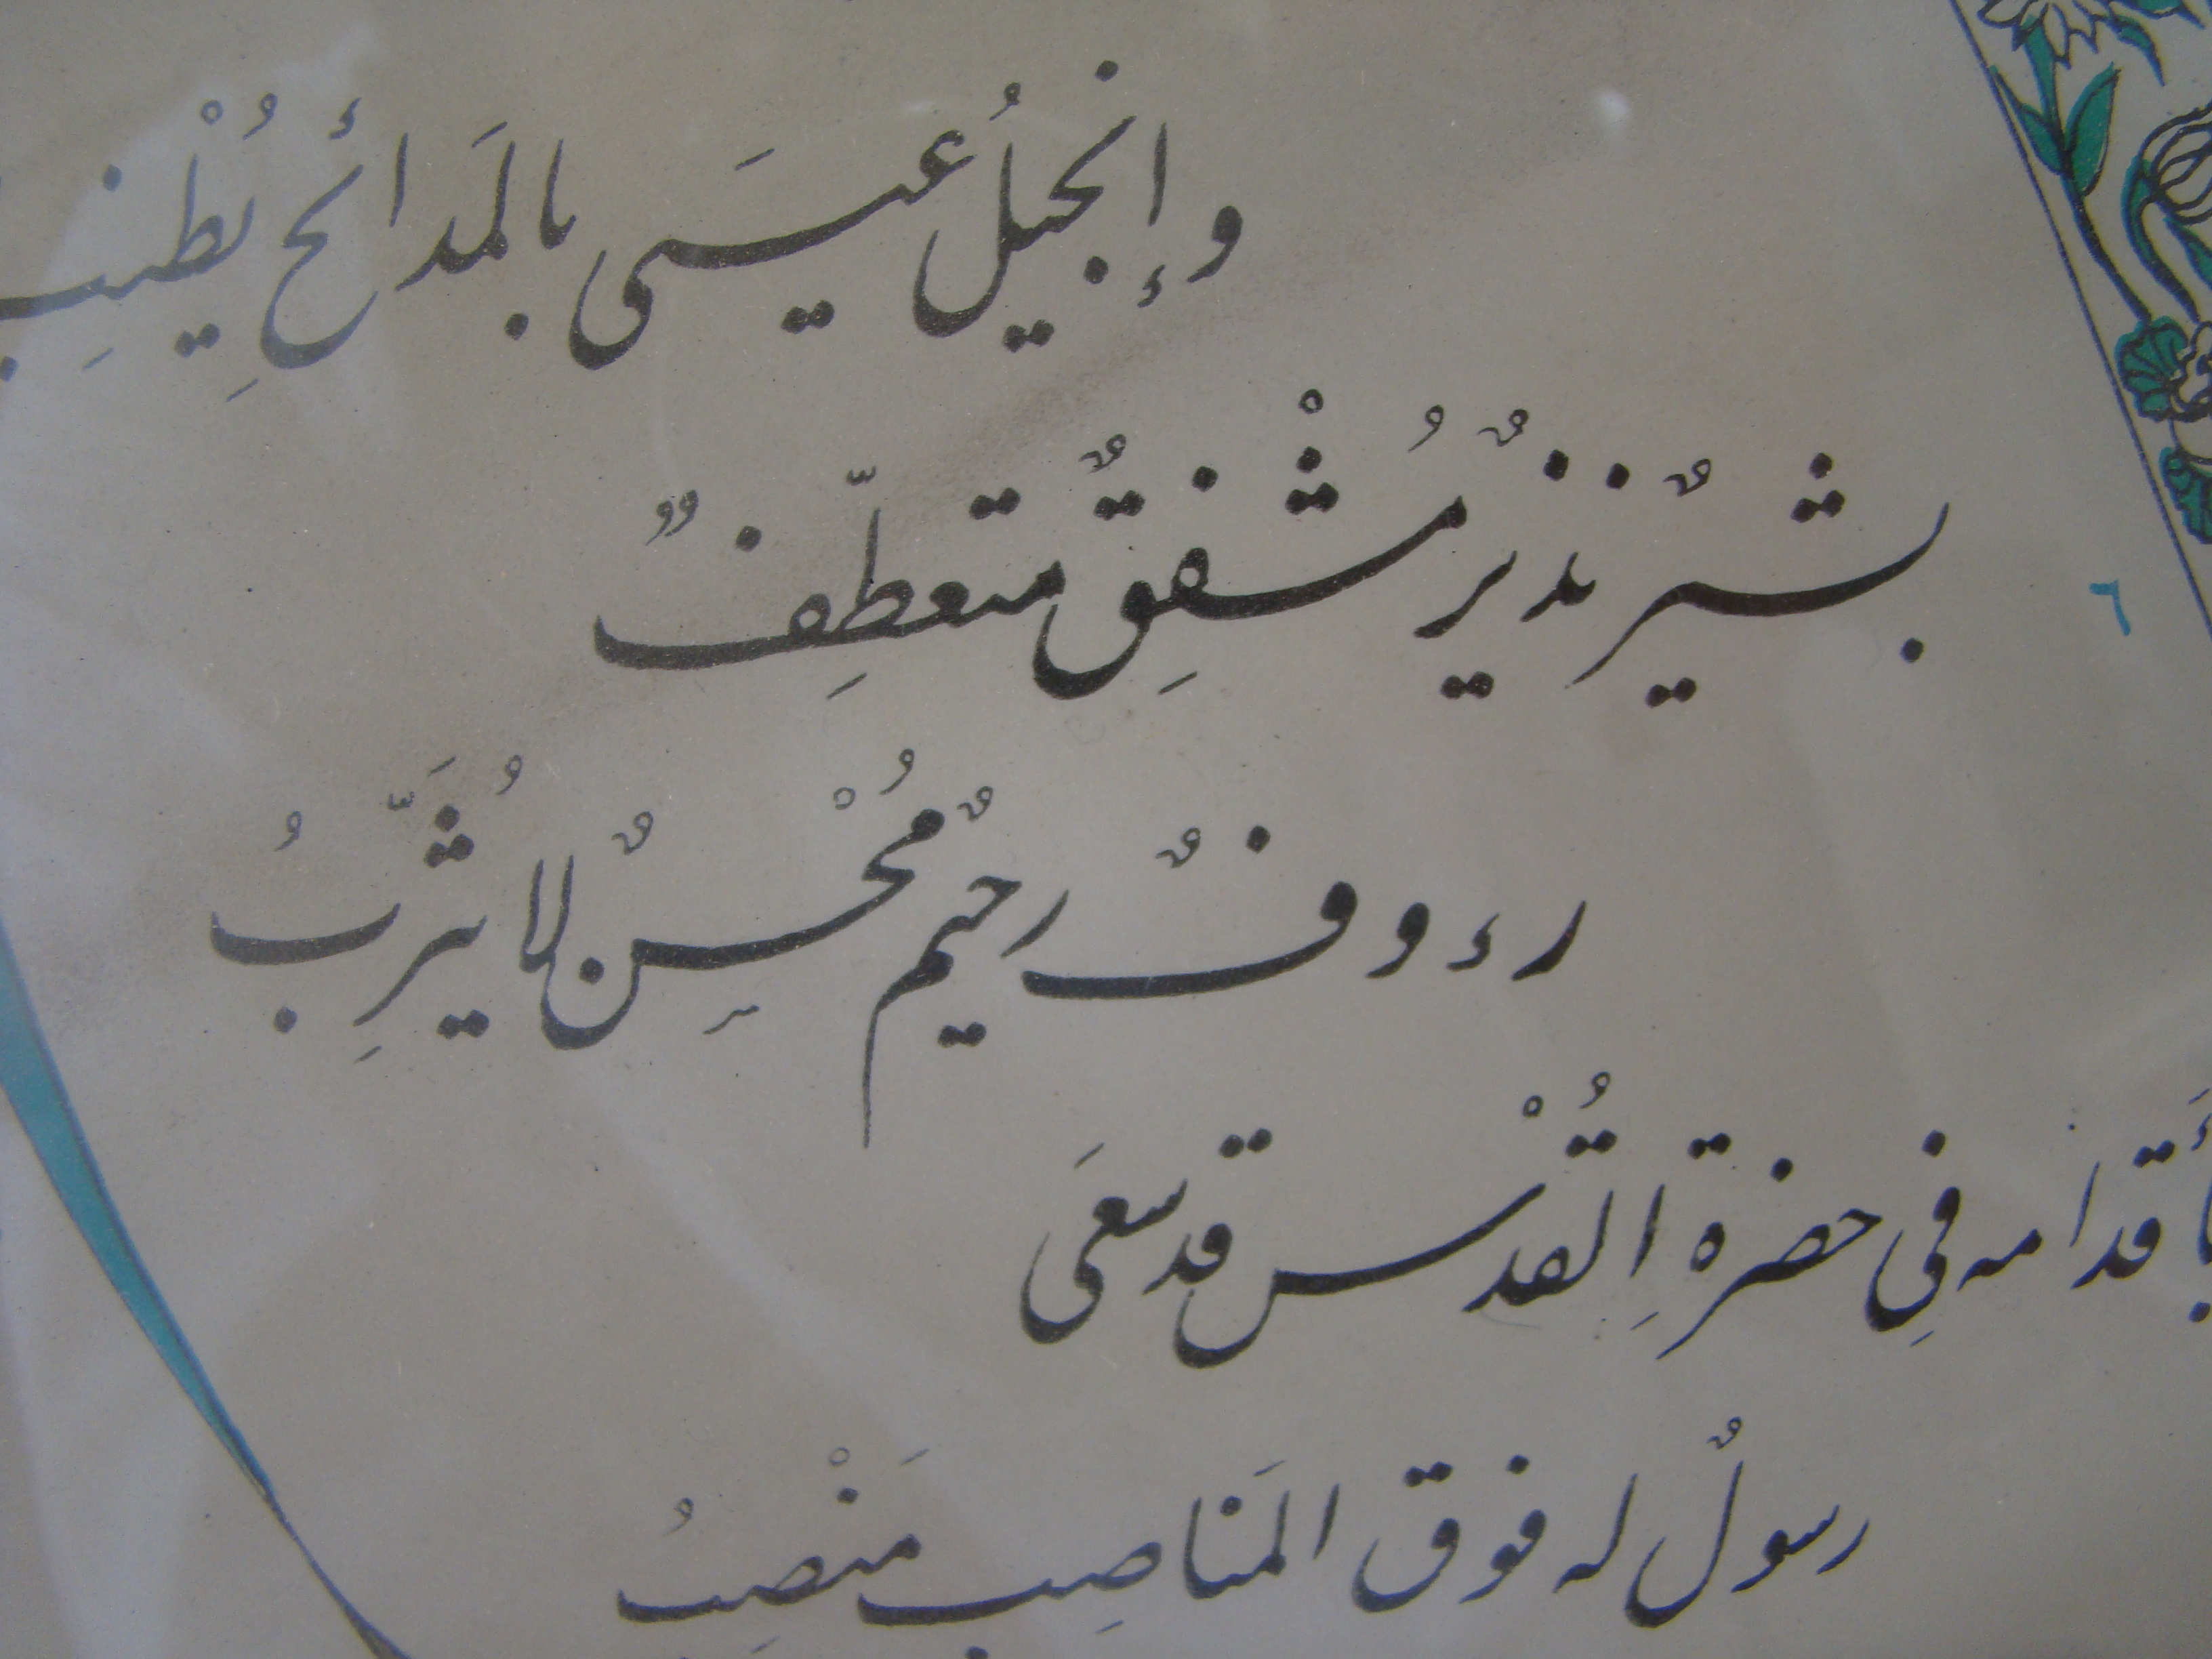 وإنجيلُ عيسَى بالمَدائحِ يُطْنِب
بشيرٌ نذيرٌ مُشْفِقٌ متعطِّفٌ
٦
رءوفٌ رحيمٌ مُحْسِنٌ لا يُثَرِّبُ
بأَقدامه في حضرةِ القُدْسِ قد سَعَى
رسولٌ له فوق المَناصِب مَنْصِبُ